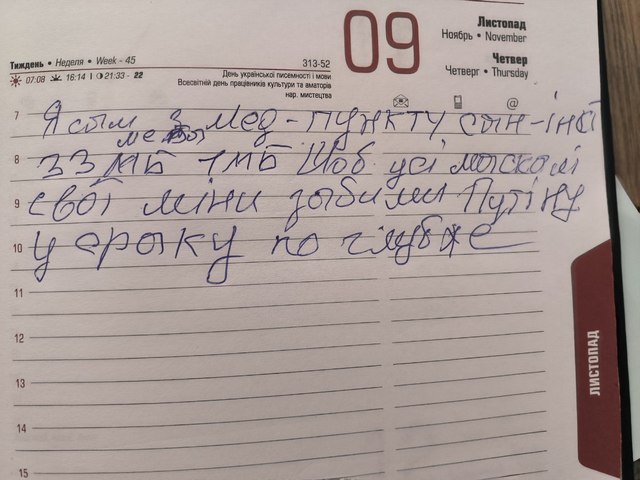 09
Листопад
Ноябрь • November
Четвер
Четверг • Thursday
Тиждень • Неделя • Week - 45
313-52
07:08 16:14 | 21:33 - 22
День української писемності і мови
Всесвітній день працівників культури та аматорів
нар. мистецтва
@
7 Я з Мед-пункту
8 33 МБ 1МБ Щоб усі москалі
9 свої міни забили Путіну
10 у сраку по глубже
11
12
13
14
15
ЛИСТОПАД